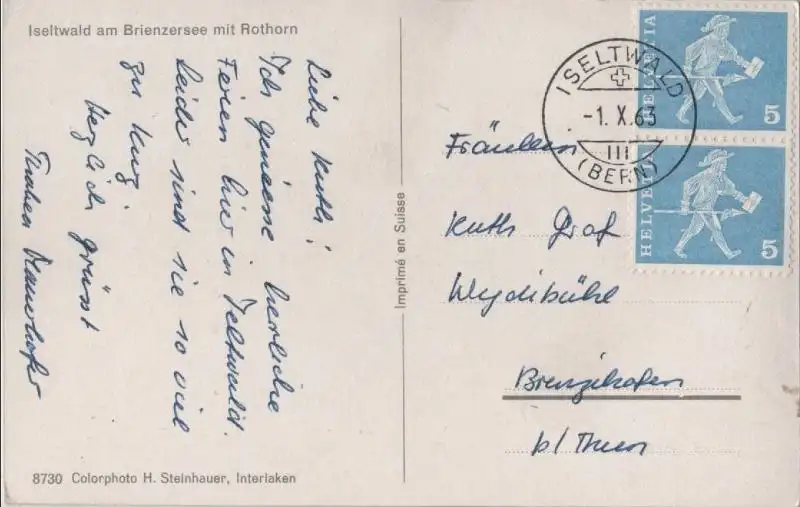 Iseltwald am Brienzersee mit Rothorn
Liebe Ruth!
Ich geniesse herrliche
Ferien hier in Iseltwald.
Leider sind sie so viel
zu kurz.
Herzlich grüsst
8730 Colorphoto H. Steinhauer, Interlaken
Imprimé en Suisse
ISELTWALD
-1.X.63
(BERN)
HELVETIA
5
HELVETIA
5
Fräulein
Ruth Graf
Weydibühl
Brenzikofen
b/Thun